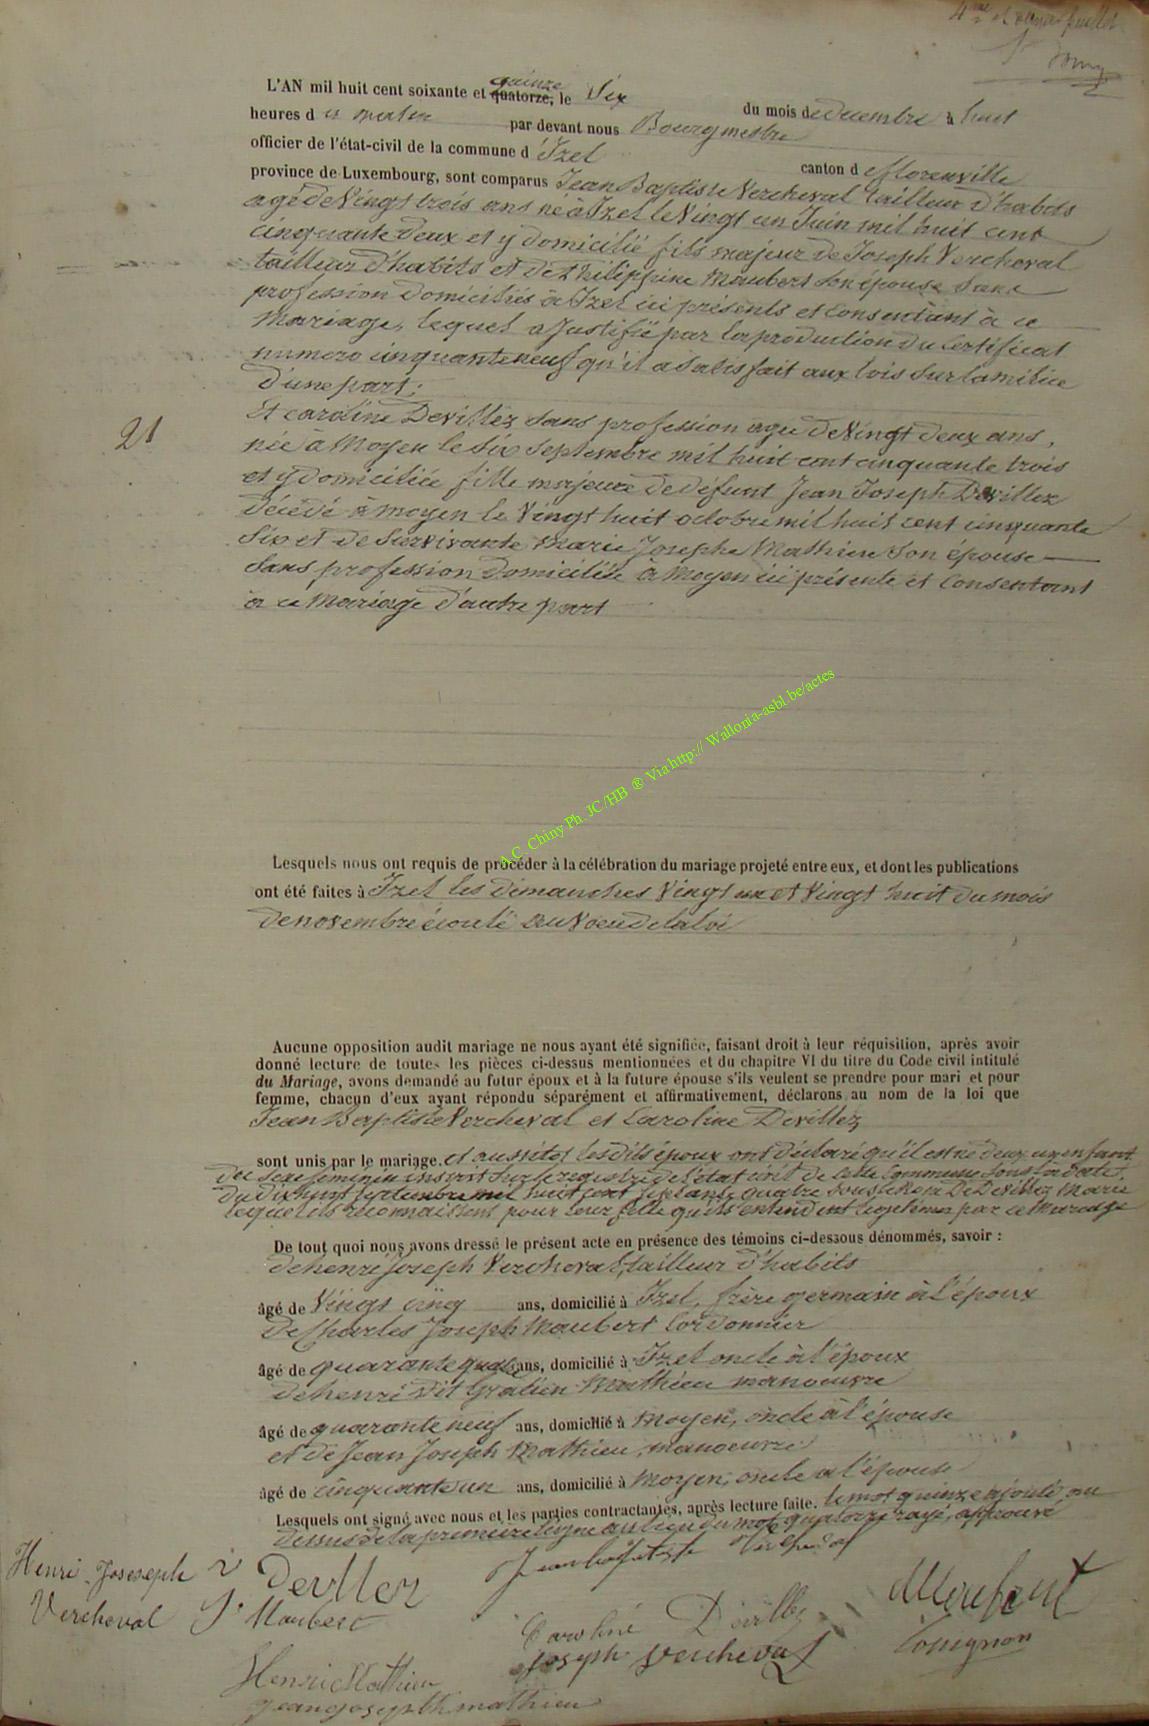 4me et dernier feuillet
L'AN mil huit cent soixante et quatorze, quinze le Six du mois de décembre à huit
heures du matin par devant nous Bourgmestre
officier de l'état-civil de la commune d'Izel canton de florenville
province de Luxembourg, sont comparus Jean Baptiste Vercheval tailleur d'habits
agé de Vingt trois ans né à Izel le Vingt un Juin mil huit cent
cinquante deux et y domicilié fils majeur de Joseph Vercheval
tailleur d'habits et de Philippine Maubert son épouse sans
profession domiciliés à Izel ici présents et consentant à ce
Mariage, lequel a justifié par la production du certificat
numero cinquante neuf qu'il a satisfait aux lois sur la milice
d'une part;
21
Et caroline Devillez sans profession agée de Vingt deux ans,
née à Moyen le six septembre mil huit cent cinquante trois
et y domiciliée fille majeure de défunt Jean Joseph Devillez
décédé à moyen le Vingt huit octobre mil huit cent cinquante
Six et de survivante Marie Josephe Mathieu son épouse
sans profession domiciliée à Moyen ici présente et consentant
à ce Mariage d'autre part
A.C. Chiny Ph. JC/HB ® Via http:// Wallonia-asbl.be/actes
Lesquels nous ont requis de procéder à la célébration du mariage projeté entre eux, et dont les publications
ont été faites à Izel les dimanches Vingt un et Vingt huit du mois
de novembre écoulé au Voeu de la loi
Aucune opposition audit mariage ne nous ayant été signifiée, faisant droit à leur réquisition, après avoir
donné lecture de toutes les pièces ci-dessus mentionnées et du chapitre VI du titre du Code civil intitulé
du Mariage, avons demandé au futur époux et à la future épouse s'ils veulent se prendre pour mari et pour
femme, chacun d'eux ayant répondu séparément et affirmativement, déclarons au nom de la loi que
Jean Baptiste Vercheval et Caroline Devillez
sont unis par le mariage. et aussitôt les dits époux ont déclaré qu'il est né d'eux un enfant
du sexe féminin inscrit sur le registre de l'état civil de cette commune sous la date
du dix huit septembre mil huit cent septante quatre sous le nom De Devillez Marie
lequel ils reconnaissent pour leur fille qu'ils entendent légitimer par ce Mariage
De tout quoi nous avons dressé le présent acte en présence des témoins ci-dessous dénommés, savoir :
de henri Joseph Vercheval, tailleur d'habits
âgé de Vingt cinq ans, domicilié à Izel, frère germain à l'époux
De Charles Joseph Maubert Cordonnier
âgé de quarante quatre ans, domicilié à Izel oncle à l'époux
de henri dit Gratien Mathieu manoeuvre
âgé de quarante neuf ans, domicilié à Moyen, oncle à l'épouse
et de Jean Joseph Mathieu, manoeuvre
âgé de cinquante un ans, domicilié à Moyen, oncle à l'épouse
Lesquels ont signé avec nous et les parties contractantes, après lecture faite. le mot quinze ajouté au
dessus de la première ligne au lieu du mot quatorze rayé, approuvé
Henri Joseseph Vercheval
Devillez
Jean baptiste Vercheval
J. Maubert
Caroline Devillez
Joseph Vercheval
Henri Mathieu
jean joseph mathieu